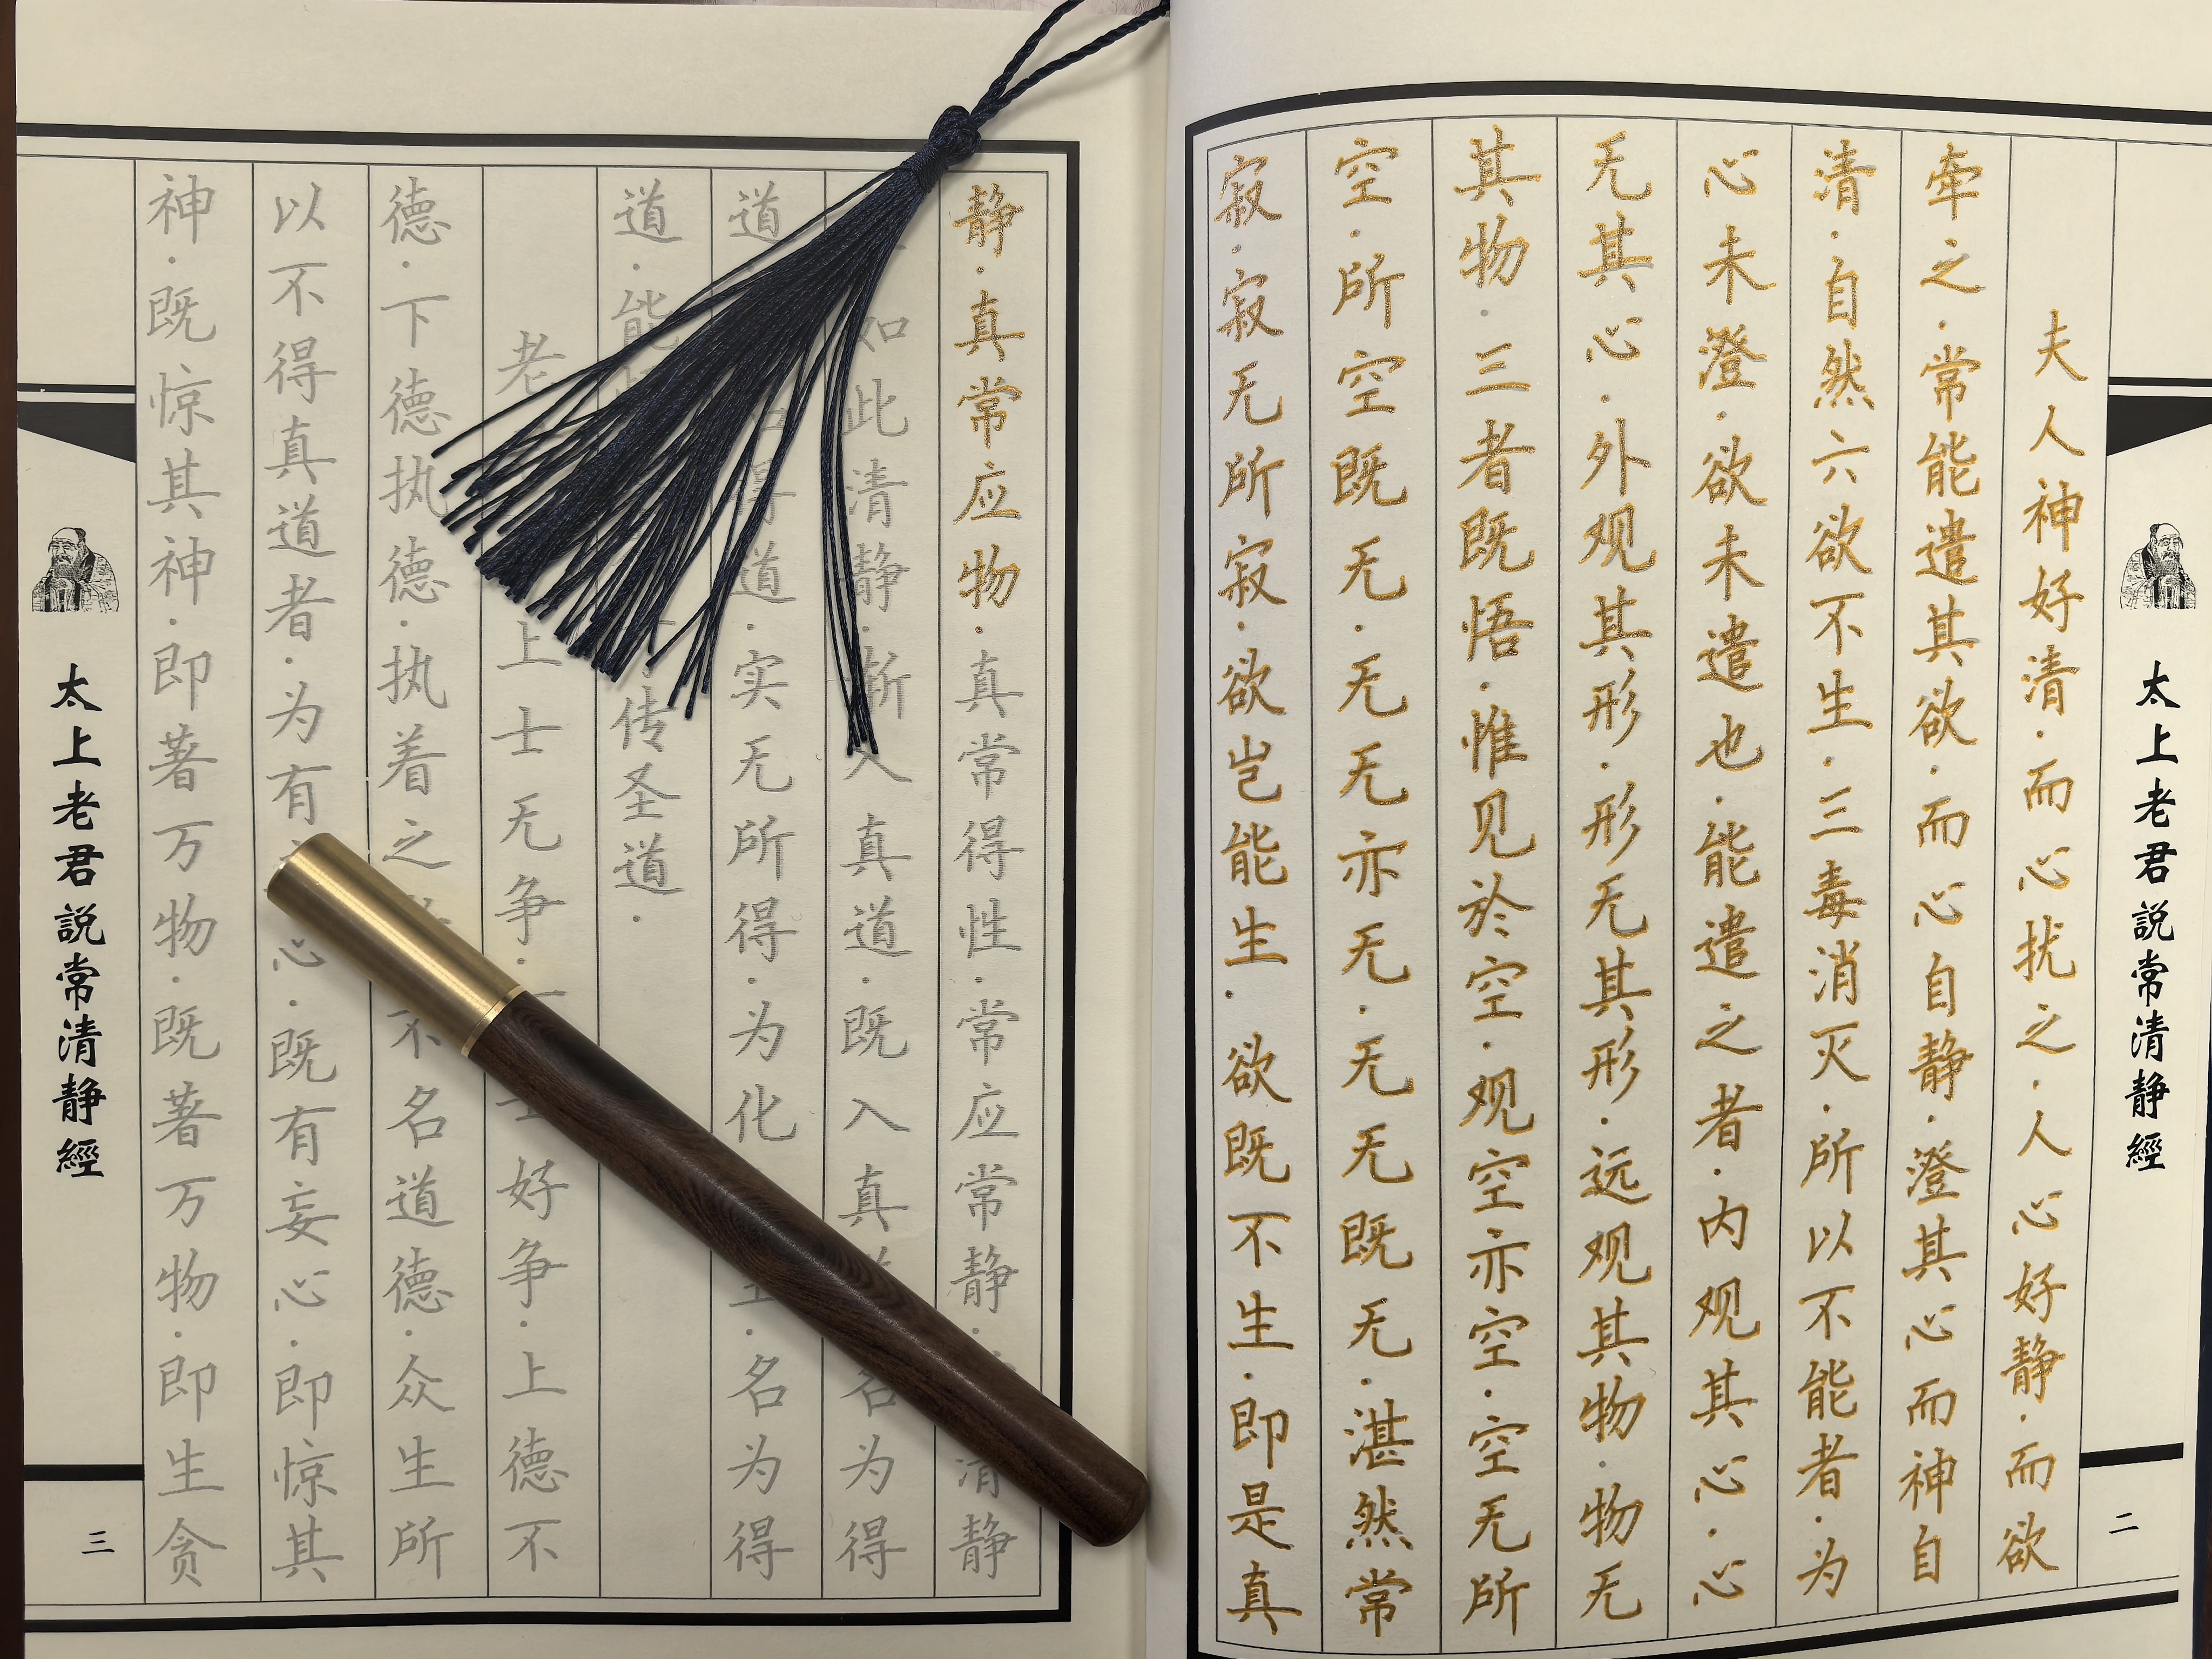 太上老君説常清静經
二
夫人神好清·而心扰之·人心好静·而欲
牵之·常能遣其欲·而心自静·澄其心而神自
清·自然六欲不生·三毒消灭·所以不能者·为
心未澄·欲未遣也·能遣之者·内观其心·心
无其心·外观其形·形无其形·远观其物·物无
其物·三者既悟·惟见於空·观空亦空·空无所
空·所空既无·无无亦无·无无既无·湛然常
寂·寂无所寂·欲岂能生·欲既不生·即是真
静·真常应物·真常得性·常应常静·清静
如此清静·渐入真道·既入真名为得
道·得道·实无所得·为化名为得
道·能传圣道·
老上士无争·好争·上德不
德·下德执德·执着之不名道德·众生所
以不得真道者·为有心·既有妄心·即惊其
神·既惊其神·即著万物·既著万物·即生贪
太上老君説常清静經
三